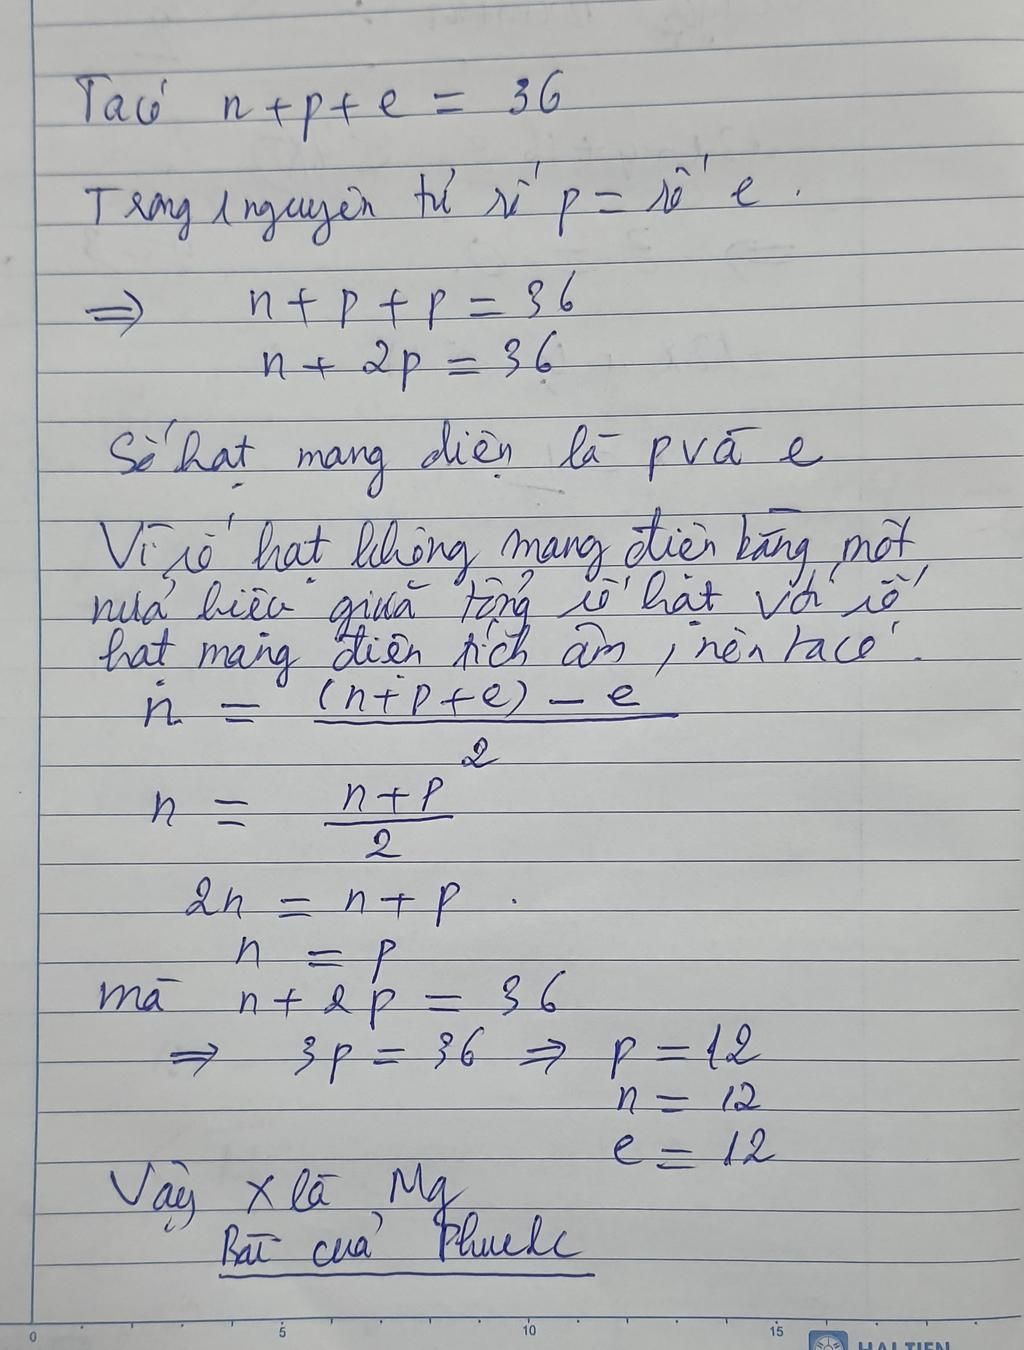 Ta có n + p + e = 36
Trong 1 nguyên tử số p = số e .
⇒ n + p + p = 36
n + 2p = 36
Số hạt mang điện là p và e
Vì số hạt không mang điện bằng một
nửa hiệu giữa tổng số hạt với số
hạt mang điện tích âm , nên ta có
n = (n + p + e) - e
2
n = n + p
2
2n = n + p .
n = p
mà n + 2p = 36
⇒ 3p = 36 ⇒ p = 12
n = 12
e = 12
Vậy X là Mg
Bài của
0 5 10 15
HAI TIEN